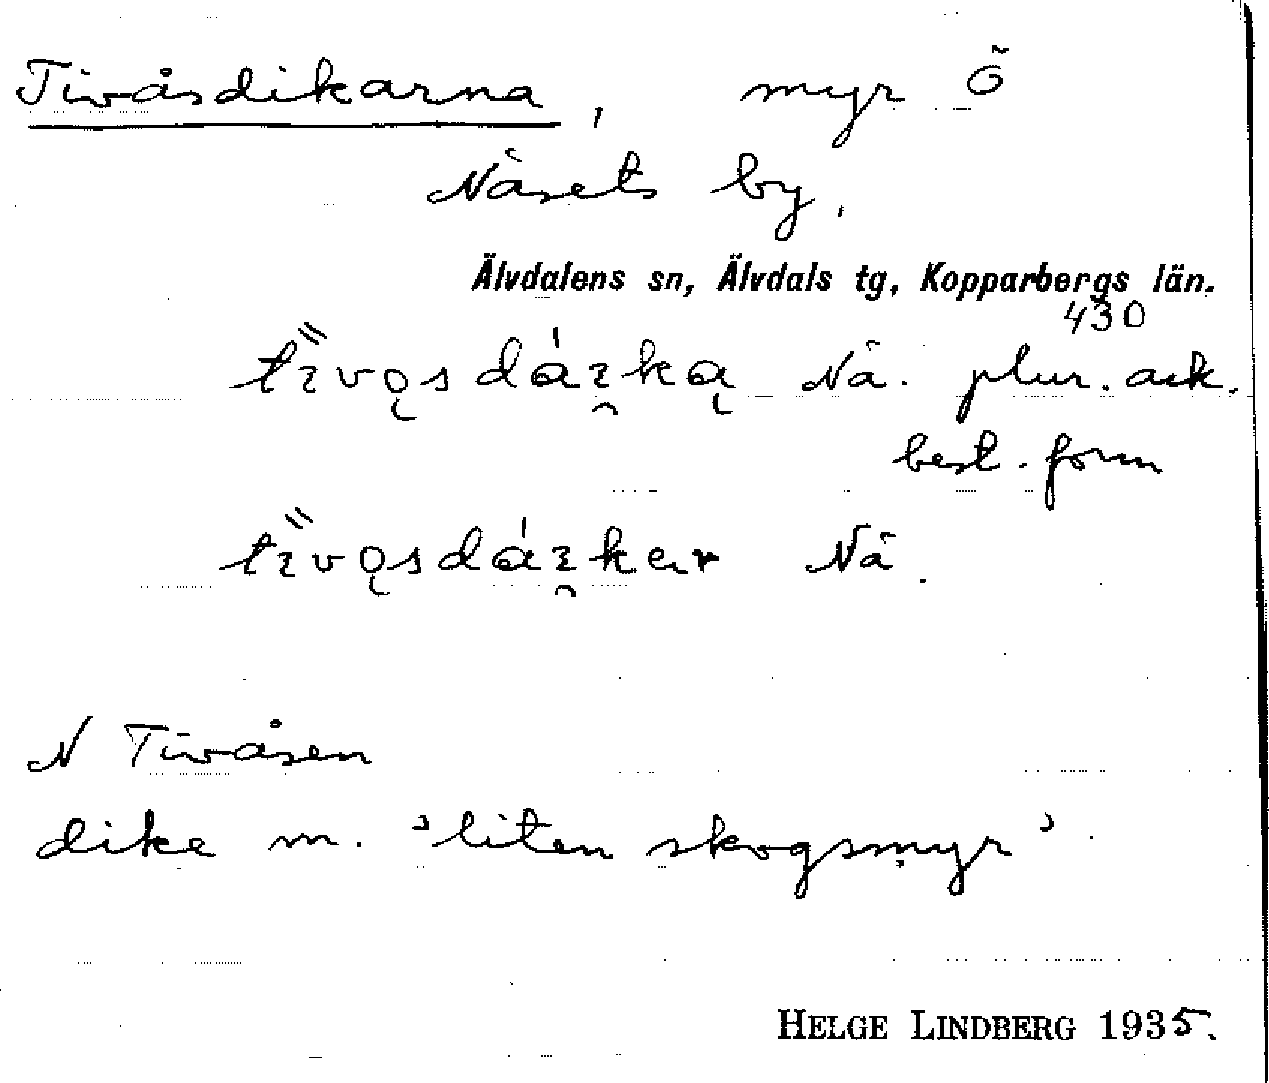 Tivåsdikarna, myr Ö
Näsets by.
Älvdalens sn, Älvdals tg, Kopparbergs län.
430
Nä. plur. ack.
best. form
Nä.
N Tivåsen
dike m. 'liten skogsmyr'.
HELGE LINDBERG 1935.